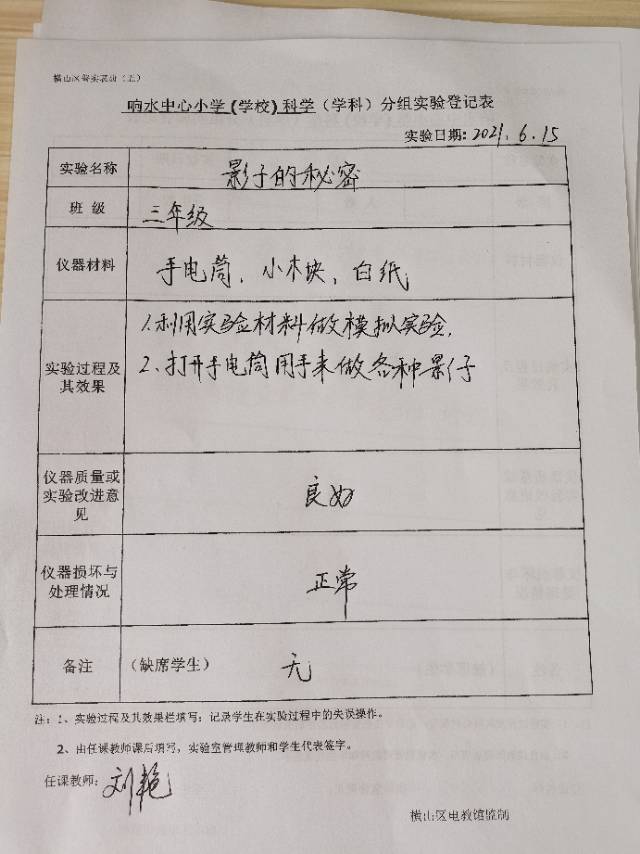 响水中心小学(学校)科学(学科)分组实验登记表
实验日期:2021.6.15
实验名称 影子的秘密
班 级 三年级
仪器材料 手电筒、小木块、白纸
实验过程及其效果
1.利用实验材料做模拟实验.
2、打开手电筒用手来做各种影子
仪器质量或实验改进意见 良好
仪器损坏与处理情况 正常
备注 (缺席学生) 无
注:1、实验过程及其效果栏填写:记录学生在实验过程中的失误操作。
2、由任课教师课后填写,实验室管理教师和学生代表签字。
任课教师:刘艳
横山区电教馆监制